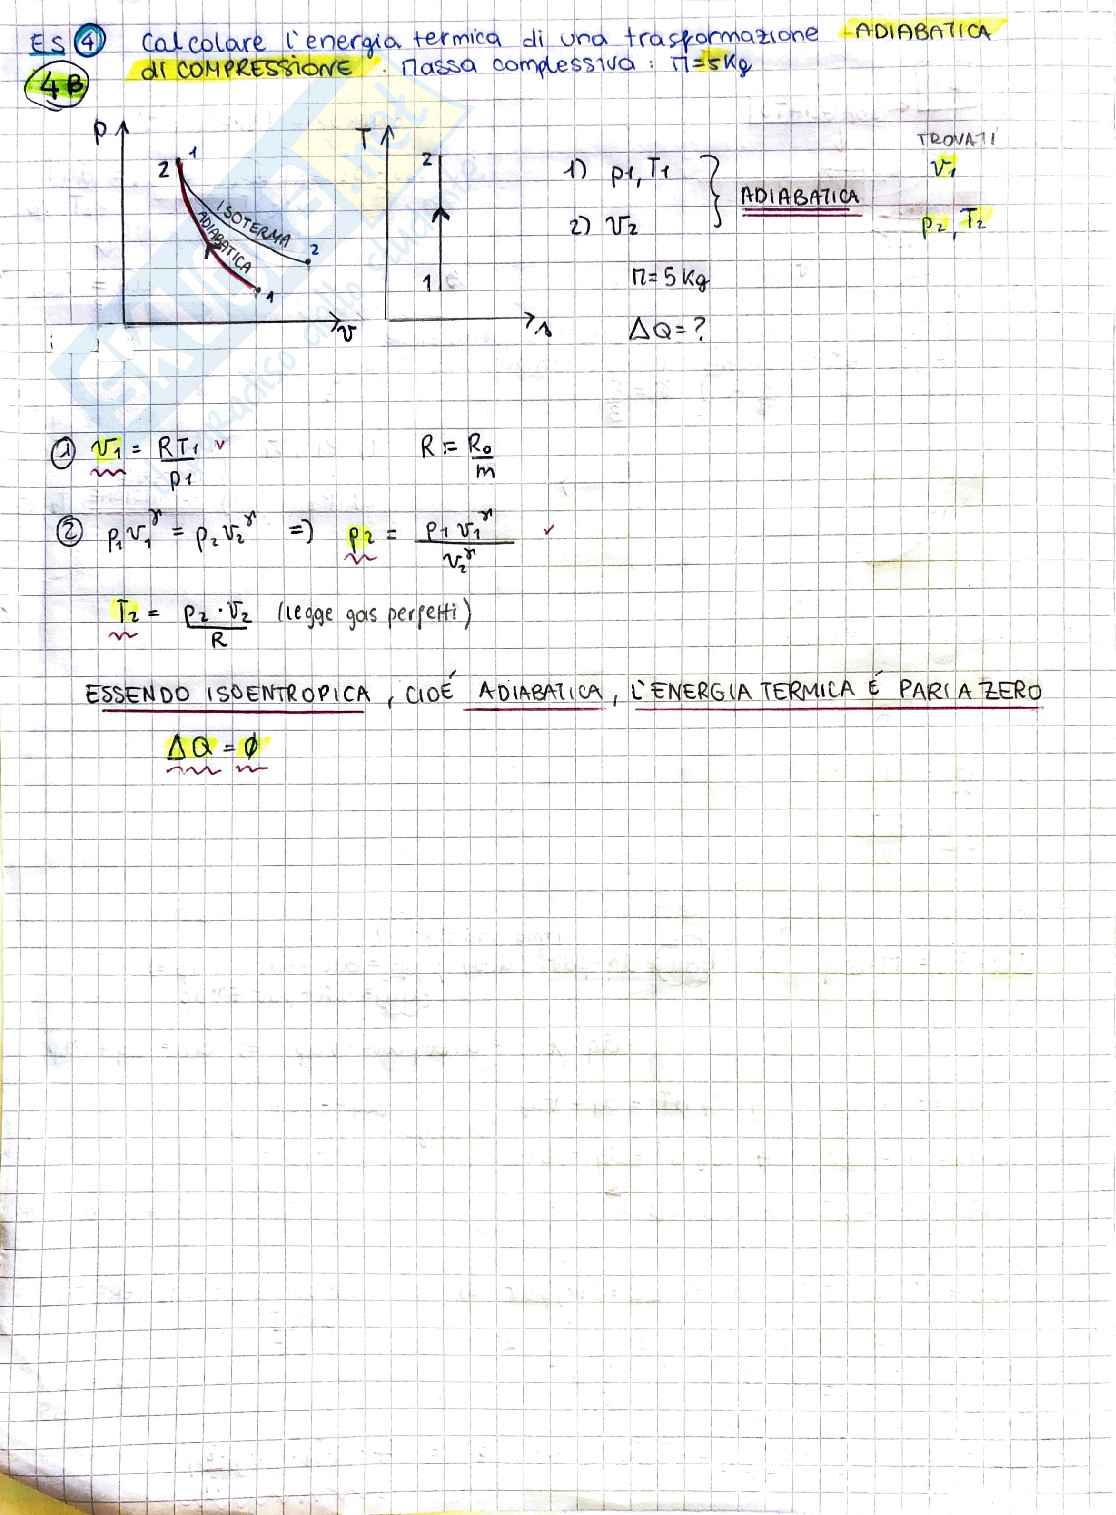 ES 4 Calcolare l'energia termica di una trasformazione ADIABATICA
4B di COMPRESSIONE. Massa complessiva: M=5Kg
P
T
TROVATI
2 1
2
1) p1, T1
v1
ISOTERMA
ADIABATICA
2) v2
ADIABATICA
p2, T2
2
1
1
M=5Kg
v
s
ΔQ=?
1 v1 = RT1/p1
R := R0/m
2 p1v1^γ = p2v2^γ => p2 = p1v1^γ/v2^γ
T2 = p2·v2/R (legge gas perfetti)
ESSENDO ISOENTROPICA, CIOÉ ADIABATICA, L'ENERGIA TERMICA É PARI A ZERO
ΔQ = ϕ